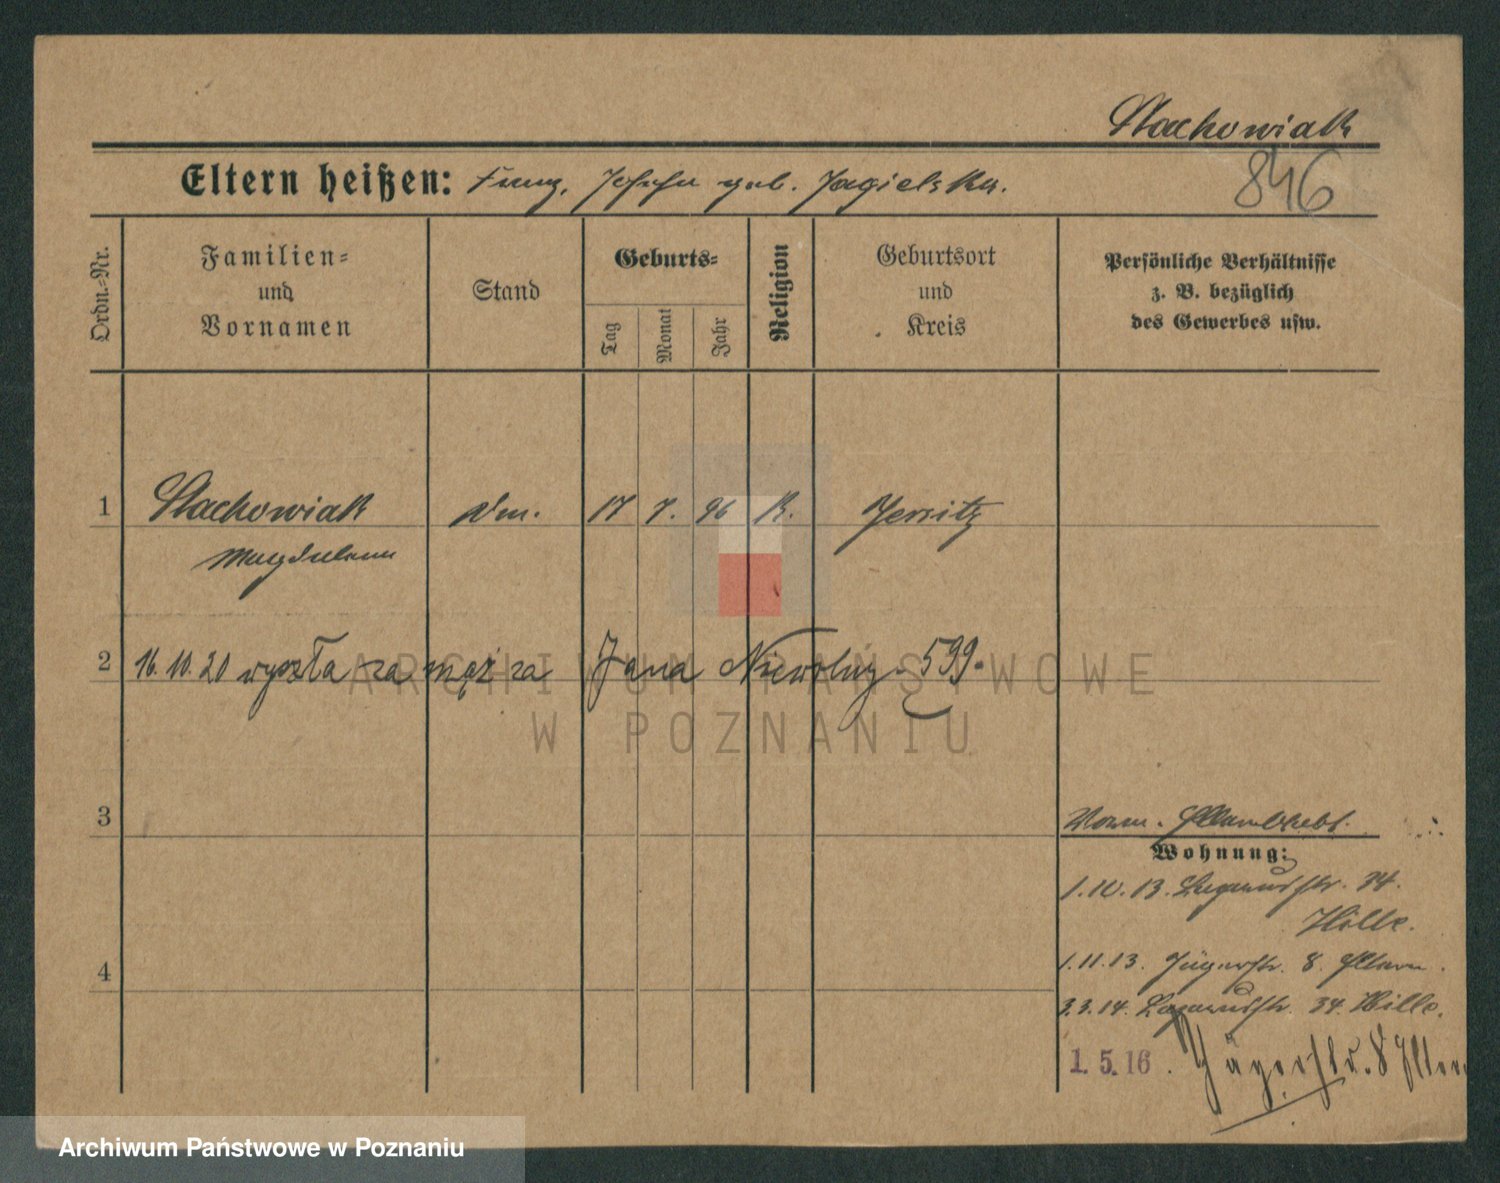 Stachowiak
846
Eltern heißen: Franz, Josefa geb. Jagielska.
Ordn.-Nr.
Familien-
und
Vornamen
Stand
Geburts-
Tag
Monat
Jahr
Religion
Geburtsort
und
Kreis
Persönliche Verhältnisse
z. B. bezüglich
des Gewerbes usw.
1 Stachowiak 17 7. 96 K. Jersitz
Magdalena
2 16.10.20 wyszła za mąż za Jana Niewolny 599.
3
Wohnung:
1.10.13. 34.
Hille.
4
1.11.13. Jägerstr. 8. Eltern.
3.3.14. 34. Hille.
1.5.16. Jägerstr. 8 Eltern
ARCHIWUM PAŃSTWOWE
W POZNANIU
Archiwum Państwowe w Poznaniu